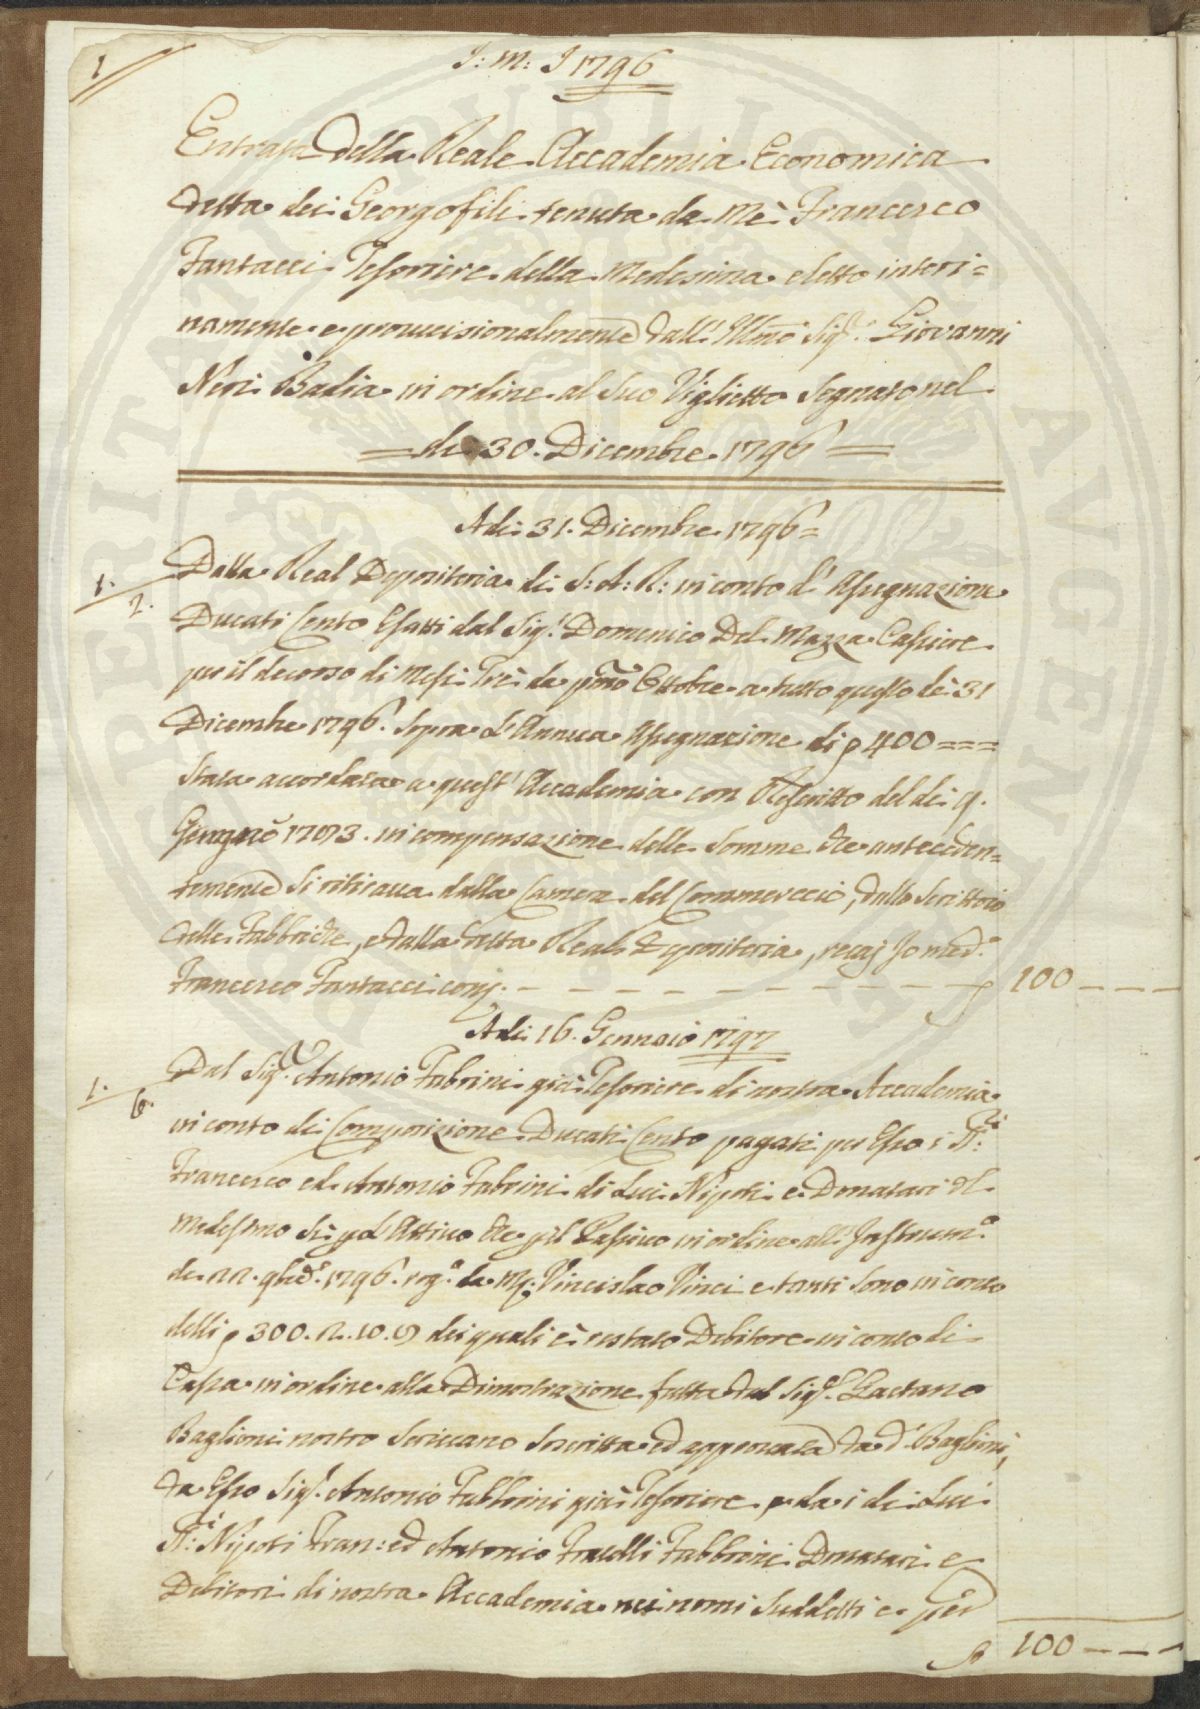 1
J: M: J 1796
Entrata Della Reale Accademia Economica
detta dei Georgofili tenuta da Mè Francesco
Fantacci Tesoriere della Medesima eletto interi=
namente e provvisionalmente dall' Illmo Sigr. Giovanni
Neri Badia in ordine al Suo Viglietto Segnato nel
= dì 30. Dicembre 1796 =
Adi 31. Dicembre 1796 =
Dalla Real Depositeria di S: A: R: in conto d' Assegnazione
1./2.
Ducati Cento Esatti dal Sigr. Domenico Del Mazza Cassiere
per il decorso di Mesi Trè da pmo Ottobre a tutto questo dì 31
Dicembre 1796. sopra l'Annua Assegnazione di p 400 ===
Stata accordata a quest' Accademia con Rescritto del dì 9.
Giugno 1793. in compensazione delle Somme che anteceden=
temente si ritirava dalla Camera del Commerccio, dallo Scrittoio
delle Fabbriche, e dalla detta Real Depositeria, recò Io med.o
Francesco Fantacci cont. - - - - - - - - p 100 - - -
Adi 16. Gennaio 1797
1./6.
Dal Sigr. Antonio Fabrini già Tesoriere di nostra Accademia
in conto di Composizione Ducati Cento pagati per Esso i SS:ri
Francesco ed Antonio Fabrini di Lui Nipoti e Donatari del
Medesimo Sì p l'Attivo che p il Passivo in ordine all' Instrum.o
de 22. 9bre. 1796. rog.o da Mr. Vincislao Vinci e tanti sono in conto
delli p 300. 2. 10. 9 dei quali è restato Debitore in conto di
Cassa in ordine alla Dimostrazione fatta dal Sigr. Gaetano
Baglioni nostro Scrivano Soscritta ed approvata da d.o Baglioni,
da Esso Sigr. Antonio Fabbrini già Tesoriere e da i di Lui
SS:ri Nipoti Fran: ed Antonio Fratelli Fabbrini Donatari e
Debitori di nostra Accademia nei nomi Suddetti e per
p 100 - - -